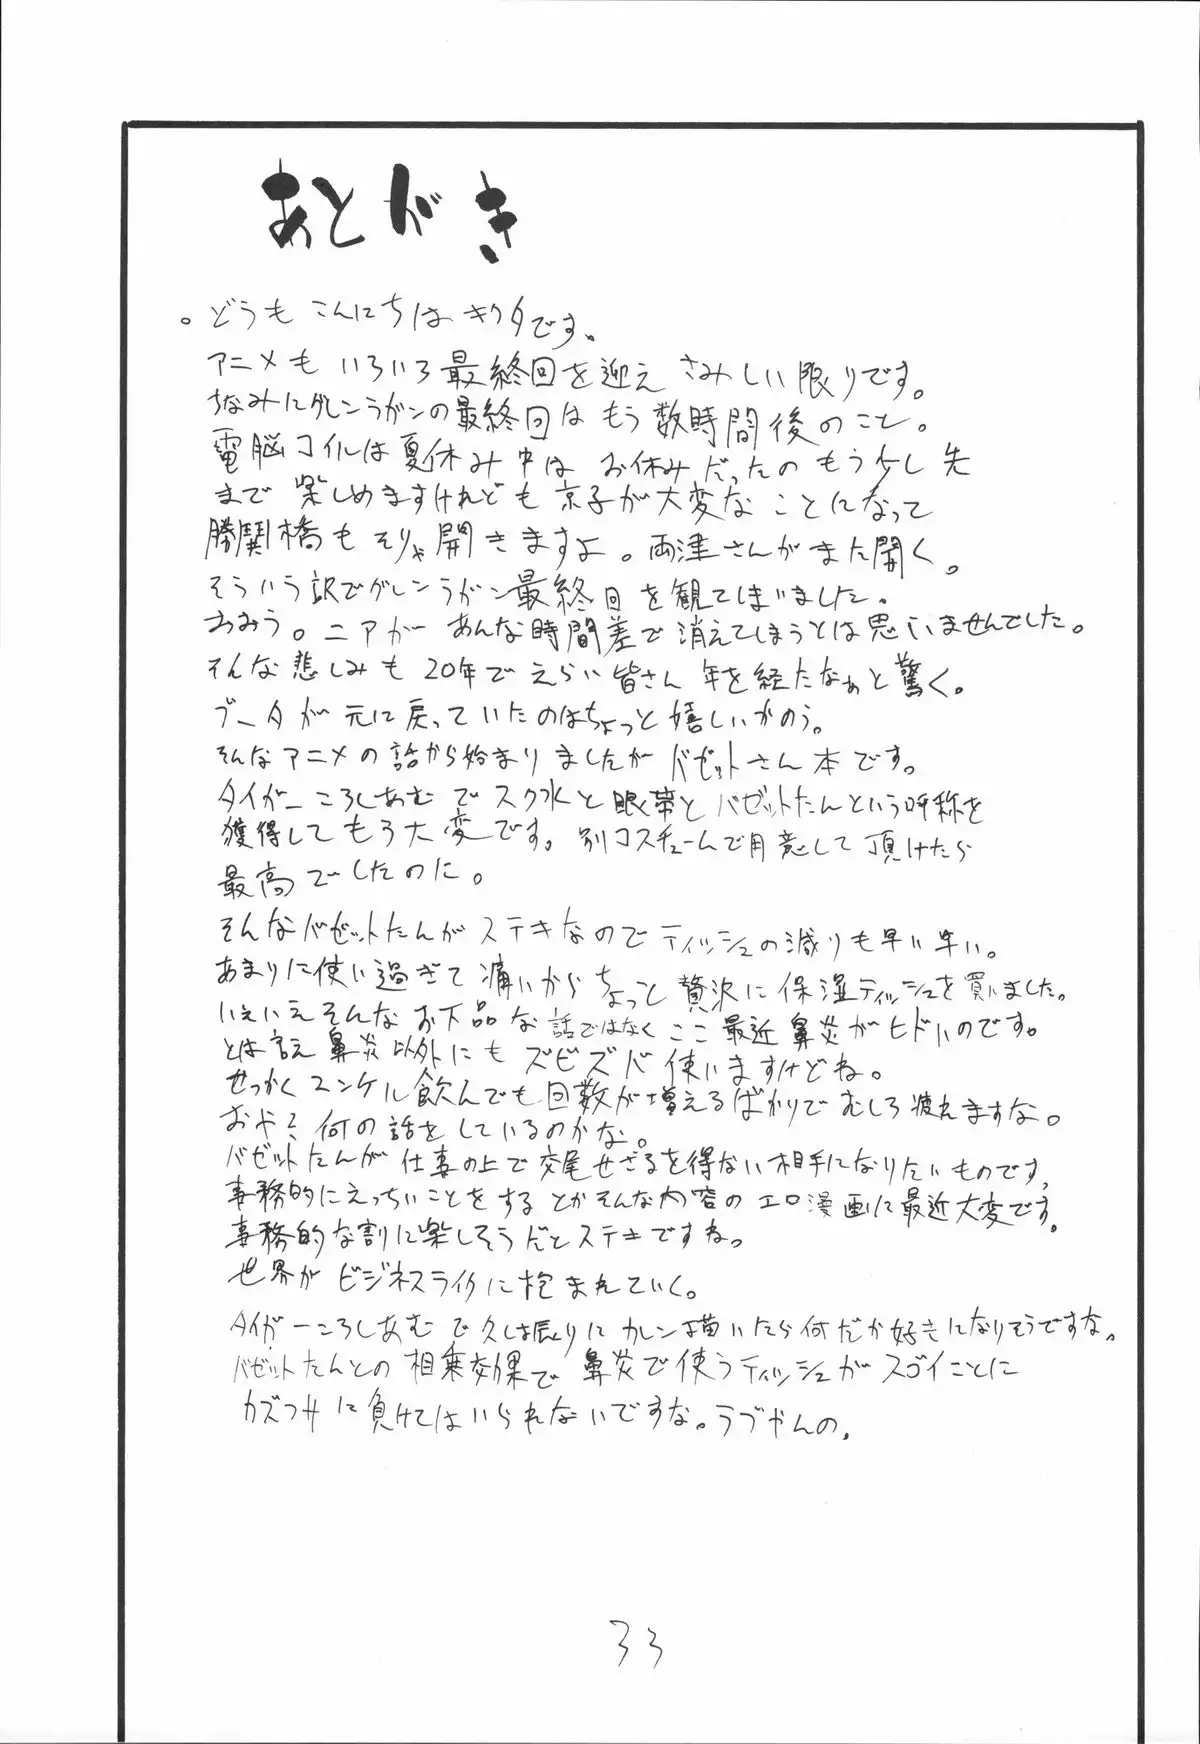 あとがき
。どうも こんにちは キクタです。
アニメも いろいろ最終回を迎え さみしい限りです。
ちなみにグレンラガンの最終回は もう数時間後のこと。
電脳コイルは夏休み中は お休みだったのもう少し先
まで 楽しめますけれども 京子が大変なことになって
勝鬨橋もそりゃ開きますよ。両津さんがまた開く。
そういう訳でグレンラガン最終回を観てしまいました。
おみう。ニアが あんな時間差で消えてしまうとは思いませんでした。
そんな悲しみも 20年でえらい皆さん 年を経たなぁと驚く。
ブータが元に戻っていたのはちょっと嬉しいかのう。
そんなアニメの話から始まりましたが バゼットさん本です。
タイガーころしあむでスク水と眼帯とバゼットたんという呼称を
獲得してもう大変です。別コスチュームで用意して頂けたら
最高でしたのに。
そんなバゼットたんがステキなのでティッシュの減りも早い早い。
あまりに使い過ぎて痛いからちょっと贅沢に保湿ティッシュを買いました。
いえいえそんなお下品な話ではなくここ最近鼻炎がヒドいのです。
とは言え鼻炎以外にもズビズバ使いますけどね。
せっかくユンケル飲んでも回数が増えるばかりでむしろ疲れますな。
おや?何の話をしているのかな。
バゼットたんが仕事の上で交尾せざるを得ない相手になりたいものです。
事務的にえっちいことをするとかそんな内容のエロ漫画に最近大変です。
事務的な割に楽しそうだとステキですね。
世界がビジネスライクに包まれていく。
タイガーころしあむで久し振りにカレン描いたら何だか好きになりそうですな。
バゼットたんとの相乗効果で鼻炎で使うティッシュがスゴイことに
カズフサに負けてはいられないですな。ラブやんの。
33